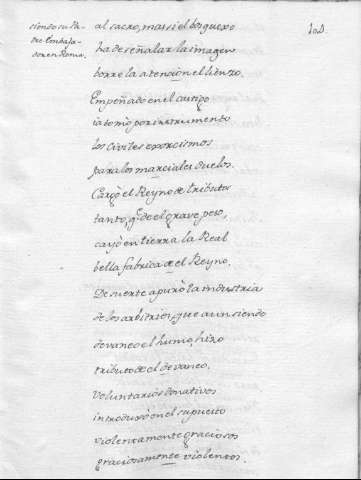 siendo su Pa-
dre Embaja-
dor en Roma.
al sacro, mas si el bosquexo
ha de señalar la imagen
borre la atencion el lienzo.
Empeñado en el
ia tomò por instrumento
los Civiles exorcismos
para los marciales duelos.
Cargò el Reyno de tributos
tanto, q.e de el grave peso,
cayò en tierra la Real
bella fabrica de el Reyno.
De suerte apurò la industria
de los arbitrios, que aun siendo
devaneo el humo, hizo
tributo de el devaneo.
Voluntarios donativos
introduxo en el supuesto
violentamente graciosos
graciosamente violentos.